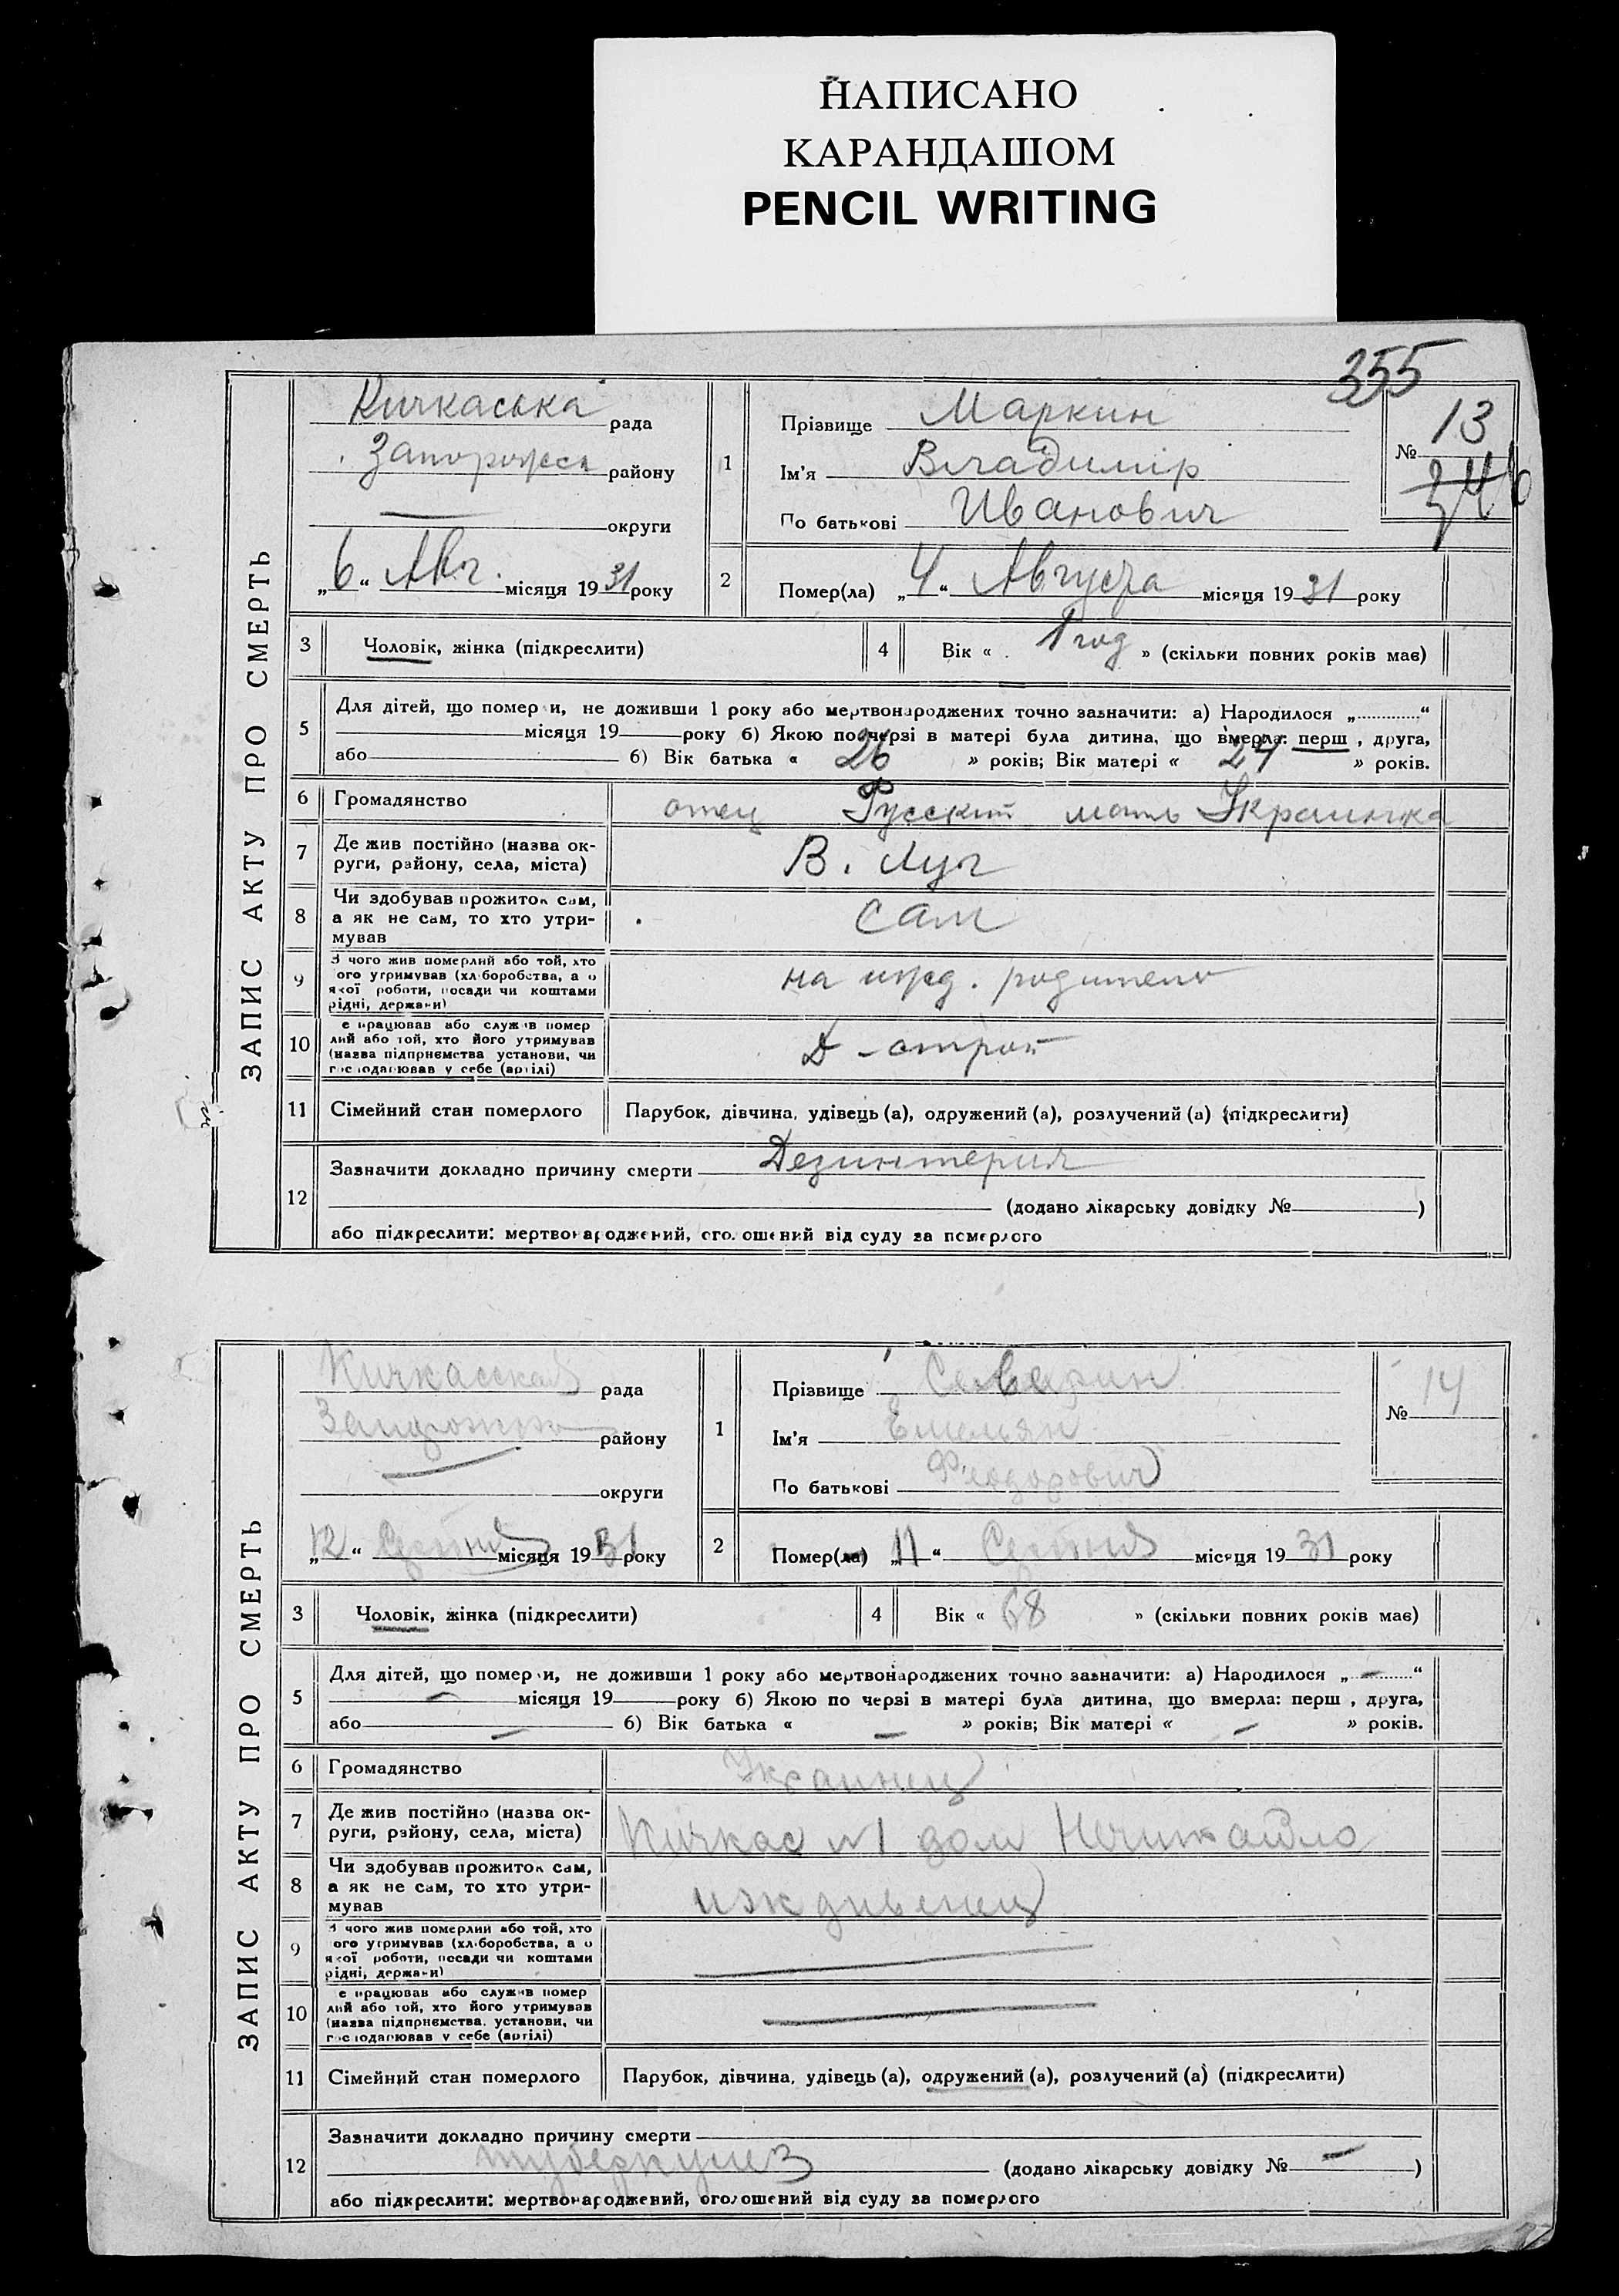 НАПИСАНО
КАРАНДАШОМ
PENCIL WRITING
355
ЗАПИС АКТУ ПРО СМЕРТЬ
Кичкаська рада
Запорожск району
округи
„6“ Авг. місяця 1931 року
1
Прізвище Маркин
Ім'я Владимір
По батькові Иванович
№ 13
346
2
Помер(ла) „4“ Августа місяця 1931 року
3 Чоловік, жінка (підкреслити)
4 Вік « 1 год » (скільки повних років має)
5
Для дітей, що померли, не доживши 1 року або мертвонароджених точно зазначити: а) Народилося „ “
місяця 19 року б) Якою по черзі в матері була дитина, що вмерла: перш , друга,
або б) Вік батька « 26 » років; Вік матері « 24 » років.
6 Громадянство отец Русский мать Украинка
7 Де жив постійно (назва ок-
руги, району, села, міста)
В. Луг
8 Чи здобував прожиток сам,
а як не сам, то хто утри-
мував
сам
9 З чого жив померлий або той, хто
ого утримував (хліборобства, а о
якої роботи, посади чи коштами
рідні, держави)
на ижд. родителю
10 е працював або служив помер
лий або той, хто його утримував
(назва підприємства установи, чи
господарював у себе (артілі)
Д-строй
11 Сімейний стан померлого Парубок, дівчина, удівець (а), одружений (а), розлучений (а) (підкреслити)
12 Зазначити докладно причину смерти Дезинтерия
(додано лікарську довідку № )
або підкреслити: мертвонароджений, оголошений від суду за померлого
ЗАПИС АКТУ ПРО СМЕРТЬ
Кичкасская рада
району
округи
„12“ місяця 1931 року
1
Прізвище Северин
Ім'я Емельян
По батькові Феодорович
№ 14
2
Помер(ла) „11“ місяця 1931 року
3 Чоловік, жінка (підкреслити)
4 Вік « 68 » (скільки повних років має)
5
Для дітей, що померли, не доживши 1 року або мертвонароджених точно зазначити: а) Народилося „ – “
– місяця 19 року б) Якою по черзі в матері була дитина, що вмерла: перш , друга,
або – б) Вік батька « – » років; Вік матері « – » років.
6 Громадянство Украинец
7 Де жив постійно (назва ок-
руги, району, села, міста)
Кичкас №1 дом Нечитайло
8 Чи здобував прожиток сам,
а як не сам, то хто утри-
мував
иждивенец
9 З чого жив померлий або той, хто
ого утримував (хліборобства, а о
якої роботи, посади чи коштами
рідні, держави)
10 е працював або служив помер
лий або той, хто його утримував
(назва підприємства, установи, чи
господарював у себе (артілі)
11 Сімейний стан померлого Парубок, дівчина, удівець (а), одружений (а), розлучений (а) (підкреслити)
12 Зазначити докладно причину смерти
туберкулез (додано лікарську довідку № – )
або підкреслити: мертвонароджений, оголошений від суду за померлого